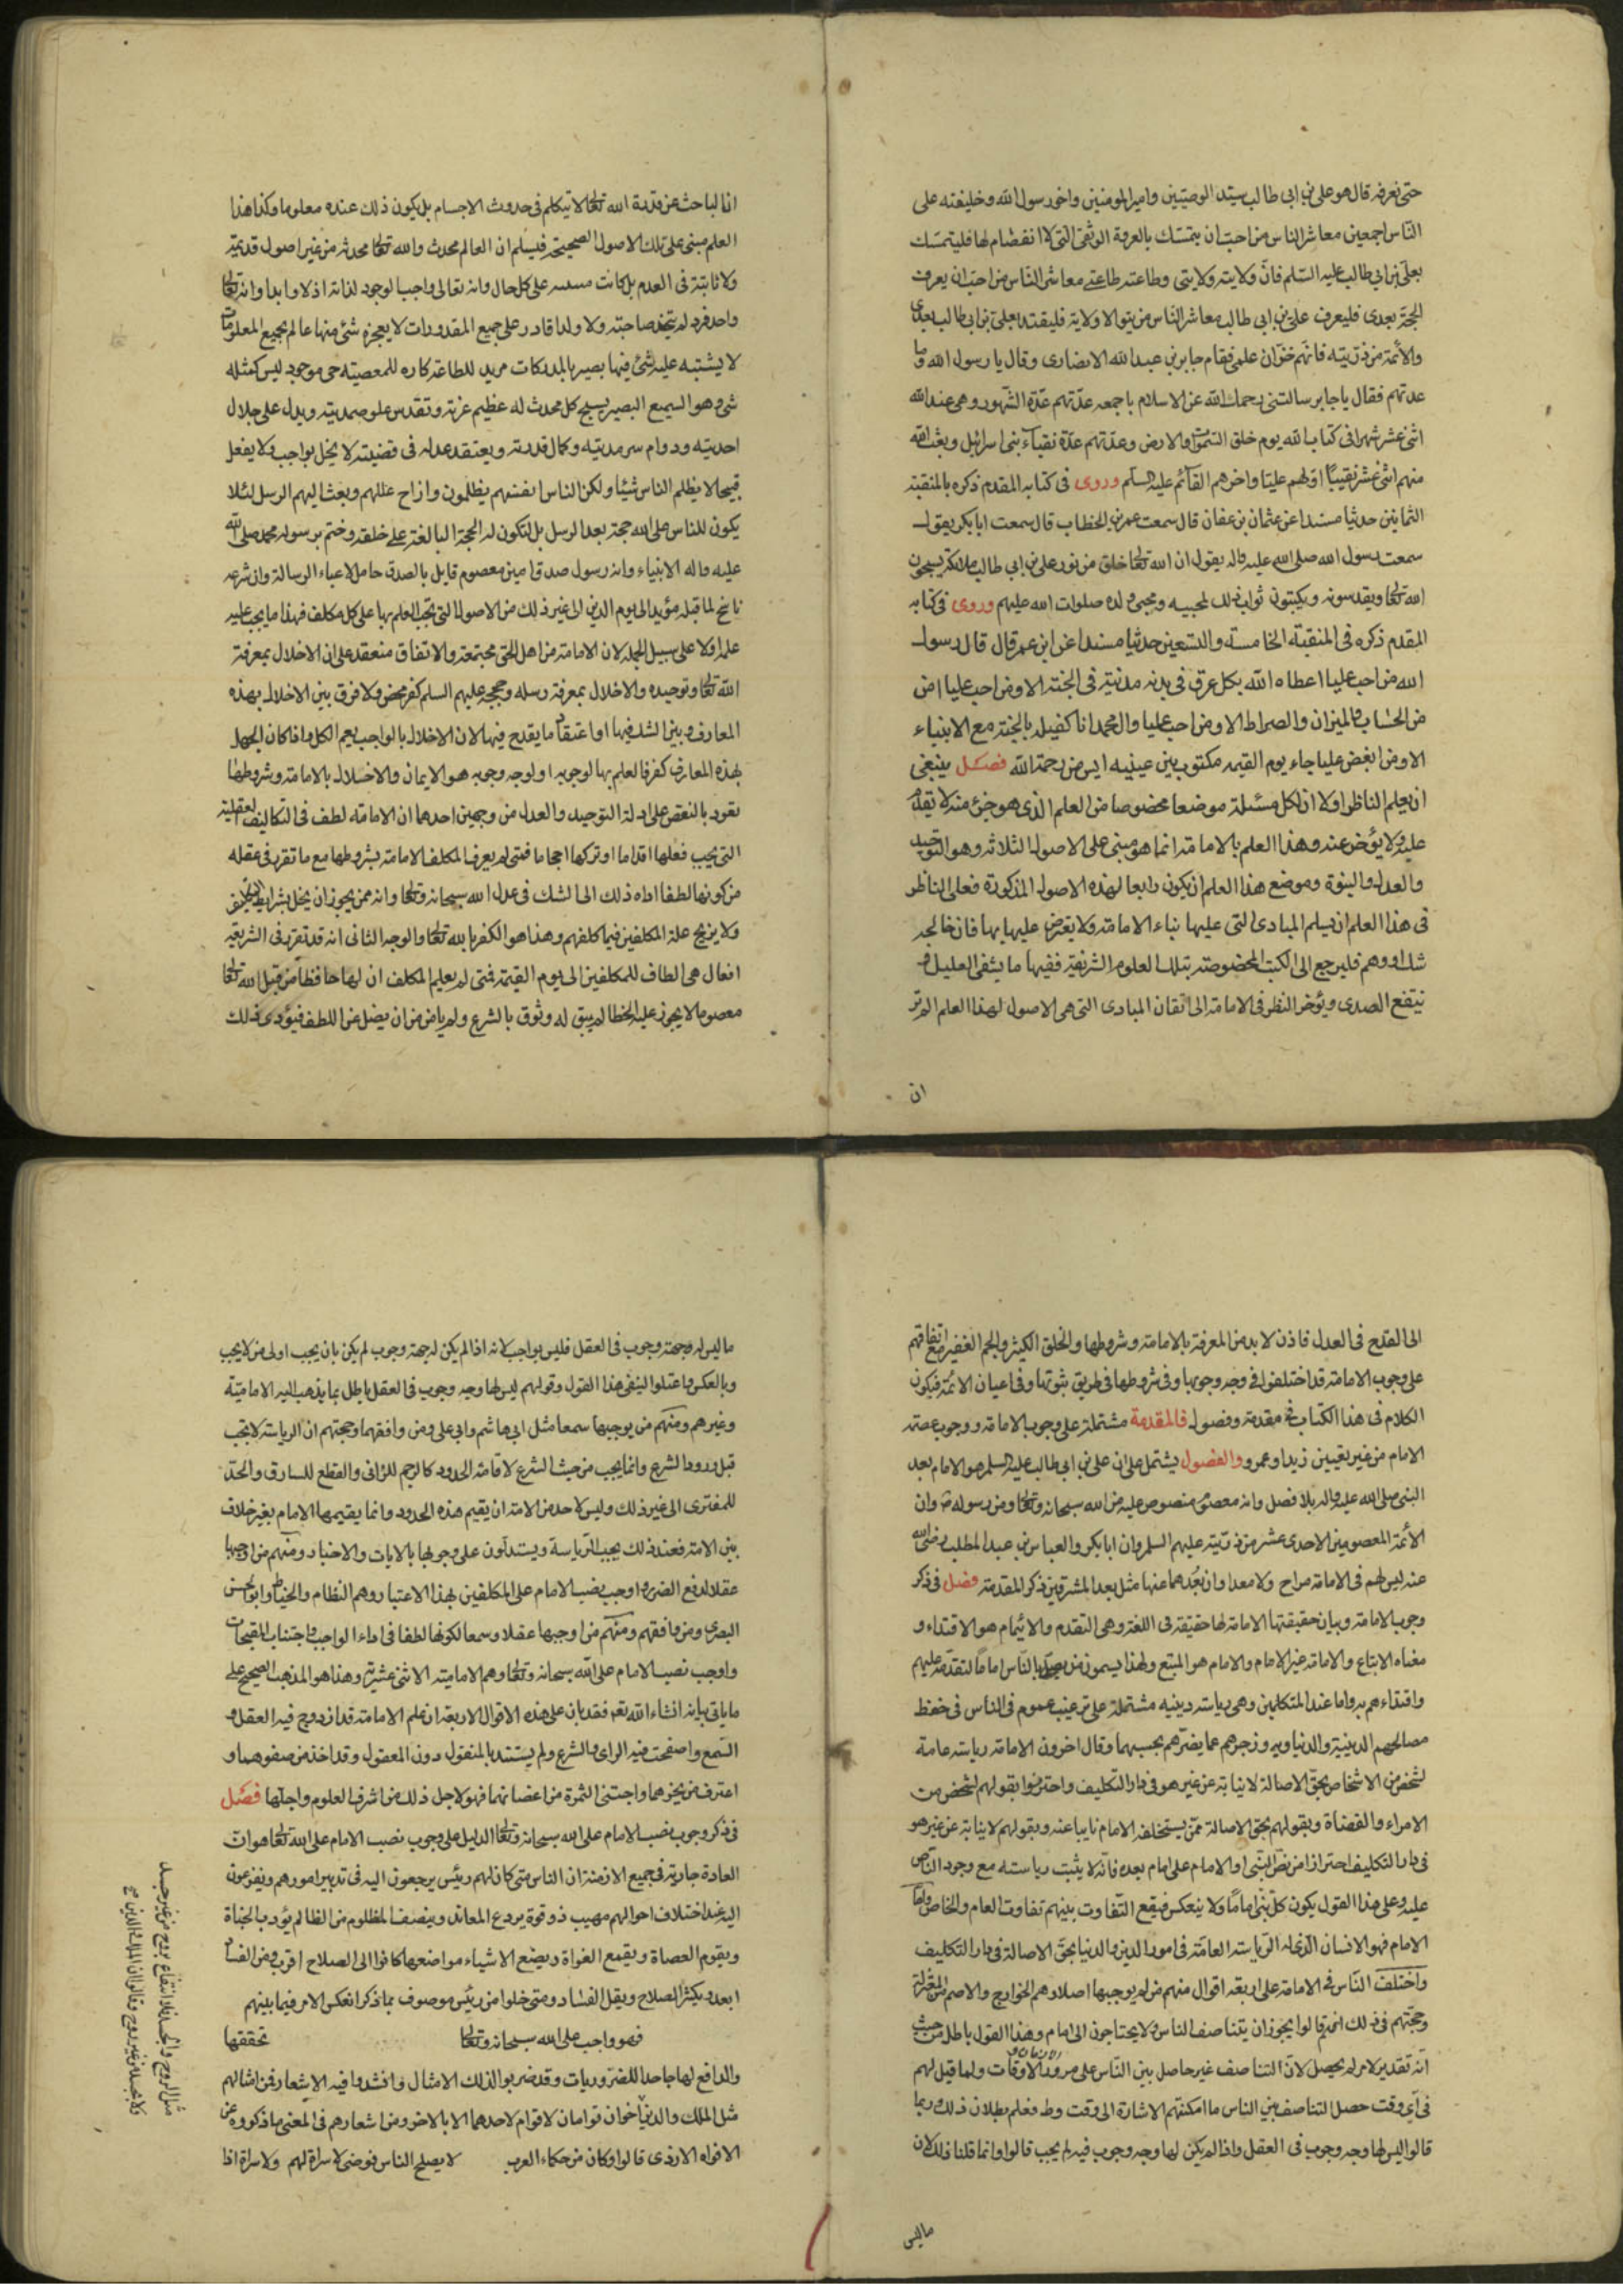 حتى نعرفه قال هو علي بن ابي طالب سيد الوصيين وامير المومنين واخو رسول الله وخليفته على
الناس اجمعين معاشر الناس من احب ان يتمسك بالعروة الوثقى التي لا انفصام لها فليتمسك
بعلي بن ابي طالب عليه السلم فان ولايته ولايتي وطاعته طاعتي معاشر الناس من احب ان يعرف
الحجة بعدى فليعرف علي بن ابي طالب معاشر الناس من يتوالا ولاية فليقتد بعلي بن ابي طالب بعدى
والأئمة من ذريته فانهم خزان علمي فقام جابر بن عبد الله الانصارى وقال يا رسول الله وما
عدتهم فقال يا جابر سالتني رحمك الله عن الاسلام باجمعه عدتهم عدة الشهور وهي عند الله
اثنى عشر شهرا في كتاب الله يوم خلق السموات والارض وعدتهم عدة نقباء بنى اسرائيل وبعث الله
منهم اثنى عشر نقيبا اولهم عليا واخرهم القائم عليه السلم وروى في كتابه المقدم ذكره بالمنقبة
الثمانين حديثا مسندا عن عثمان بن عفان قال سمعت عمر بن الخطاب قال سمعت ابا بكر يقول
سمعت رسول الله صلى الله عليه واله يقول ان الله تعالى خلق من نور علي بن ابي طالب ملائكة يسبحون
الله تعالى ويقدسونه ويكتبون ثواب ذلك لمحبيه ومحبي ولده صلوات الله عليهم وروى في كتابه
المقدم ذكره في المنقبة الخامسة والتسعين حديثا مسندا عن ابن عمر قال قال رسول
الله من احب عليا اعطاه الله بكل عرق في بدنه مدينة في الجنة الا ومن احب عليا امن
من الحساب والميزان والصراط الا ومن احب عليا وال محمد انا كفيله بالجنة مع الانبياء
الا ومن ابغض عليا جاء يوم القيمه مكتوب بين عينيه ايس من رحمة الله فصل ينبغى
ان يعلم الناظر اولا ان لكل مسئلة موضعا مخصوصا من العلم الذى هو جزء منه لا يقدم
عليه ولا يؤخر عنه وهذا العلم بالامامة انما هو مبنى على الاصول الثلاثه وهو التوحيد
والعدل والنبوة وموضع هذا العلم ان يكون رابعا لهذه الاصول المذكورة فعلى الناظر
في هذا العلم ان يسلم المبادى التى عليها بناء الامامة ولا يعترض عليها بها فان خالجه
شك او وهم فليرجع الى الكتب المخصوصة بتلك العلوم الشريفة ففيها ما يشفى العليل و
ينقع الصدى ويؤخر النظر في الامامة الى اتقان المبادى التى هى الاصول لهذا العلم الم تر
ان
ان الباحث عن قدرة الله تعالى لا يتكلم في حدوث الاجسام بل يكون ذلك عنده معلوما وكذا هذا
العلم مبنى على تلك الاصول الصحيحة فيسلم ان العالم محدث والله تعالى محدثه من غير اصول قديمة
ولا ثابتة في العدم بل كانت على كل حال وانه تعالى واجب الوجود لذاته اذلا وابدا وانه تعالى
واحد فرد لم يتخذ صاحبة ولا ولدا قادر على جميع المقدورات لا يعجزه شئ منها عالم بجميع المعلومات
لا يشتبه عليه شئ فيها بصير بالمدركات مريد للطاعة كاره للمعصيته حي موجود ليس كمثله
شئ وهو السميع البصير يسبح كل محدث له عظيم عزته وتقدس علو صمديته ويدل على جلال
احديته ودوام سرمديته وكمال قدرته ويعتقد عدله في قضيته لا يخل بواجب ولا يفعل
قبيحا لا يظلم الناس شيئا ولكن الناس انفسهم يظلمون وازاح عللهم وبعث اليهم الرسل لئلا
يكون للناس على الله حجة بعد الرسل بل لتكون له الحجة البالغة على خلقه وختم برسوله محمد صلى الله
عليه واله الانبياء وانه رسول صدق امين معصوم قايل بالصدق حامل لاعباء الرسالة وان شرعه
ناسخ لما قبله مؤيد الى يوم الدين الى غير ذلك من الاصول التى تجب العلم بها على كل مكلف فهذا ما يجب عليه
علمه اولا على سبيل الجملة لان الامامة من اهل الحق مجتمعة والاتفاق منعقد على ان الاخلال بمعرفة
الله تعالى وتوحيده والاخلال بمعرفة رسله وحججه عليهم السلم كفر محض ولا فرق بين الاخلال بهذه
المعارف وبين الشك فيها او اعتقاد ما يقدح فيها لان الاخلال بالواجب يعم الكل واذا كان الجهل
بهذه المعارف كفر فالعلم بها لوجوبه او لوجه وجوبه هو الايمان والاخلال بالامامة وشروطها
يعود بالنقص على ادلة التوحيد والعدل من وجهين احدهما ان الامامة لطف في التكاليف العقلية
التى يجب فعلها اقداما او تركها احجاما فمتى لم يعرف المكلف الامامة بشروطها مع ما تقرر في عقله
من كونها لطفا اداه ذلك الى الشك في عدل الله سبحانه وتعالى وانه ممن يجوز ان يخل بشرايط التكليف
ولا يزيح علة المكلفين فيما كلفهم وهذا هو الكفر بالله تعالى والوجه الثانى انه قد تقرر في الشريعة
افعال هى الطاف للمكلفين الى يوم القيمة فمتى لم يعلم المكلف ان لها حافظا من قبل الله تعالى
معصوما لا يجوز عليه الخطا لم يبق له وثوق بالشرع ولم يامن من ان يضل عن اللطف فيؤدى ذلك
الى القدح في العدل فاذن لا بد من المعرفة بالامامة وشروطها والخلق الكثير والجم الغفير مع اتفاقهم
على وجوب الامامة قد اختلفوا في وجه وجوبها وفي شروطها في طريق ثبوتها وفي اعيان الائمة فيكون
الكلام في هذا الكتاب في مقدمة وفصول فالمقدمة مشتملة على وجوب الامامة ووجوب عصمة
الامام من غير تعيين زيد او عمرو والفصول يشتمل على ان علي بن ابي طالب عليه السلم هو الامام بعد
النبى صلى الله عليه واله بلا فصل وانه معصوم منصوص عليه من الله سبحانه وتعالى ومن رسوله ص وان
الأئمة المعصومين الاحدى عشر من ذريته عليهم السلم وان ابا بكر والعباس بن عبد المطلب رضي الله
عنه ليس لهم في الامامة مراح ولا مغدا وان بعدهما عنها مثل بعد المشرقين ذكر المقدمة فصل في ذكر
وجوب الامامة وبيان حقيقتها الامامة لها حقيقة في اللغة وهى التقدم والايتمام هو الاقتداء و
معناه الاتباع والامامة غير الامام والامام هو المتبع ولهذا يسمون من يصلى بالناس اماما لتقدمه عليهم
واقتداءهم به واما عند المتكلمين وهى رياسة دينيه مشتملة على ترغيب عموم في الناس في حفظ
مصالحهم الدينية والدنياويه وزجرهم عما يضرهم بحسبهما وقال اخرون الامامة رياسة عامة
لشخص من الاشخاص بحق الاصالة لا نيابة عن غير هو في دار التكليف واحترزوا بقولهم لشخص من
الامراء والقضاة وبقولهم بحق الاصالة ممن يستخلفه الامام نايبا عنه وبقولهم لا نيابة عن غير هو
في دار التكليف احترازا من نص النبى او الامام على امام بعده فانه لا يثبت رياسته مع وجود الناص
عليه وعلى هذا القول يكون كل نبى اماما ولا ينعكس فيقع التفاوت بينهم تفاوت العام والخاص واما
الامام فهو الانسان الذى له الرياسة العامة في امور الدين والدنيا بحق الاصالة في دار التكليف
واختلف الناس في الامامة على اربعة اقوال منهم من لم يوجبها اصلا وهم الخوارج والاصم من المعتزلة
وحجتهم في ذلك انهم قالوا يجوز ان يتناصف الناس ولا يحتاجون الى امام وهذا القول باطل من حيث
انه تقدير لامر لم يحصل لان التناصف غير حاصل بين الناس على مرور الازمان والاوقات ولما قيل لهم
في اى وقت حصل التناصف بين الناس ما امكنهم الاشارة الى وقت وط فعلم بطلان ذلك وربما
قالوا ليس لها وجه وجوب في العقل واذا لم يكن لها وجه وجوب فيه لم يجب قالوا وانما قلنا ذلك لان
ماليس
ما ليس له وجهة وجوب في العقل فليس بواجب لانه اذا لم يكن له جهة وجوب لم يكن بان يجب اولى من لا يجب
وبالعكس وما عتلوا لينفى هذا القول وقولهم ليس لها وجه وجوب في العقل باطل بما يذهب اليه الامامية
وغيرهم ومنهم من يوجبها سمعا مثل ابى هاشم وابى على ومن وافقهما وحجتهم ان الرياسة لا تجب
قبل ورود الشرع وانما يجب من حيث الشرع لاقامة الحدود كالرجم للزانى والقطع للسارق والحد
للمفترى الى غير ذلك وليس لاحد من الامة ان يقيم هذه الحدود وانما يقيمها الامام بغير خلاف
بين الامة فعند ذلك يجب الرياسة ويستدلون على وجوبها بالايات والاخبار ومنهم من اوجبها
عقلا لدفع الضرر واوجب نصب الامام على المكلفين لهذا الاعتبار وهم النظام والخياط وابو الحسن
البصرى ومن وافقهم ومنهم من اوجبها عقلا وسمعا لكونها لطفا في اداء الواجب واجتناب المقبحات
واوجب نصب الامام على الله سبحانه وتعالى وهم الامامية الاثنى عشرية وهذا هو المذهب الصحيح على
ما ياتى بيانه انشاء الله تعه فقد بان على هذه الاقوال الاربعة ان علم الامامة قد ازدوج فيه العقل و
السمع واصفحت فيه الراى والشرع ولم يستند بالمنقول دون المعقول وقد اخذ من صفوهما و
اعترف من بحرهما واجتنى الثمرة من اغصانهما فهو لاجل ذلك من اشرف العلوم واجلها فصل
في ذكر وجوب نصب الامام على الله سبحانه وتعالى الدليل على وجوب نصب الامام على الله تعالى هو ان
العادة جارية في جميع الازمنة ان الناس متى كان لهم رئيس يرجعون اليه في تدبير امورهم ويفزعون
اليه عند اختلاف احوالهم مهيب ذو قوة يردع المعاند وينصف المظلوم من الظالم يؤدب الجناة
ويقوم العصاة ويقمع الغواة ويضع الاشياء مواضعها كانوا الى الصلاح اقرب ومن الفساد
ابعد ويكثر الصلاح ويقل الفساد ومتى خلوا من رئيس موصوف بما ذكر انعكس الامر فيما بينهم
فهو واجب على الله سبحانه وتعالى تحققها
والدافع لها جاحد للضروريات وقد ضربوا لذلك الامثال وانشدوا فيه الاشعار فمن امثالهم
مثل الملك والدين اخوان توامان لا قوام لاحدهما الا بالاخر ومن اشعارهم في المعنى ما ذكروه عن
الافواه الازدى قالوا وكان من حكماء العرب لا يصلح الناس فوضى لا سراة لهم ولا سراة اذا
مثل الروح والجسد فلا انتفاع بروح من غير جسد
ولا بجسد من غير روح وقالوا ان الملك والدين